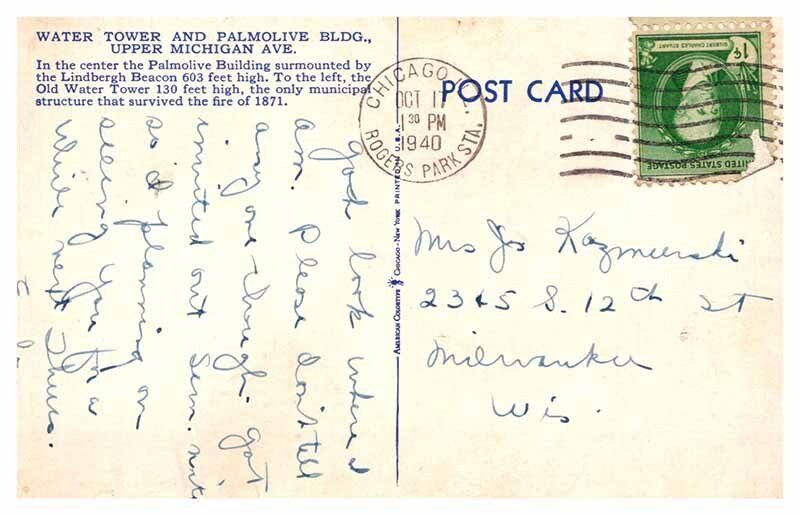 WATER TOWER AND PALMOLIVE BLDG.,
UPPER MICHIGAN AVE.
In the center the Palmolive Building surmounted by
the Lindbergh Beacon 603 feet high. To the left, the
Old Water Tower 130 feet high, the only municipal
structure that survived the fire of 1871.
God look where I
am. Please don't tell
any one though. got
invited out Sem. nite
so I planning on
seeing you for a
while next Thurs.
AMERICAN COLORTYPE CHICAGO - NEW YORK PRINTED IN U.S.A.
CHICAGO, IL
OCT 17
1 30 PM
1940
ROGERS PARK STA.
POST CARD
GILBERT CHARLES STUART
1¢
UNITED STATES POSTAGE
Mrs Js Kazmierski
2345 S. 12th St
Milwaukee
Wis.